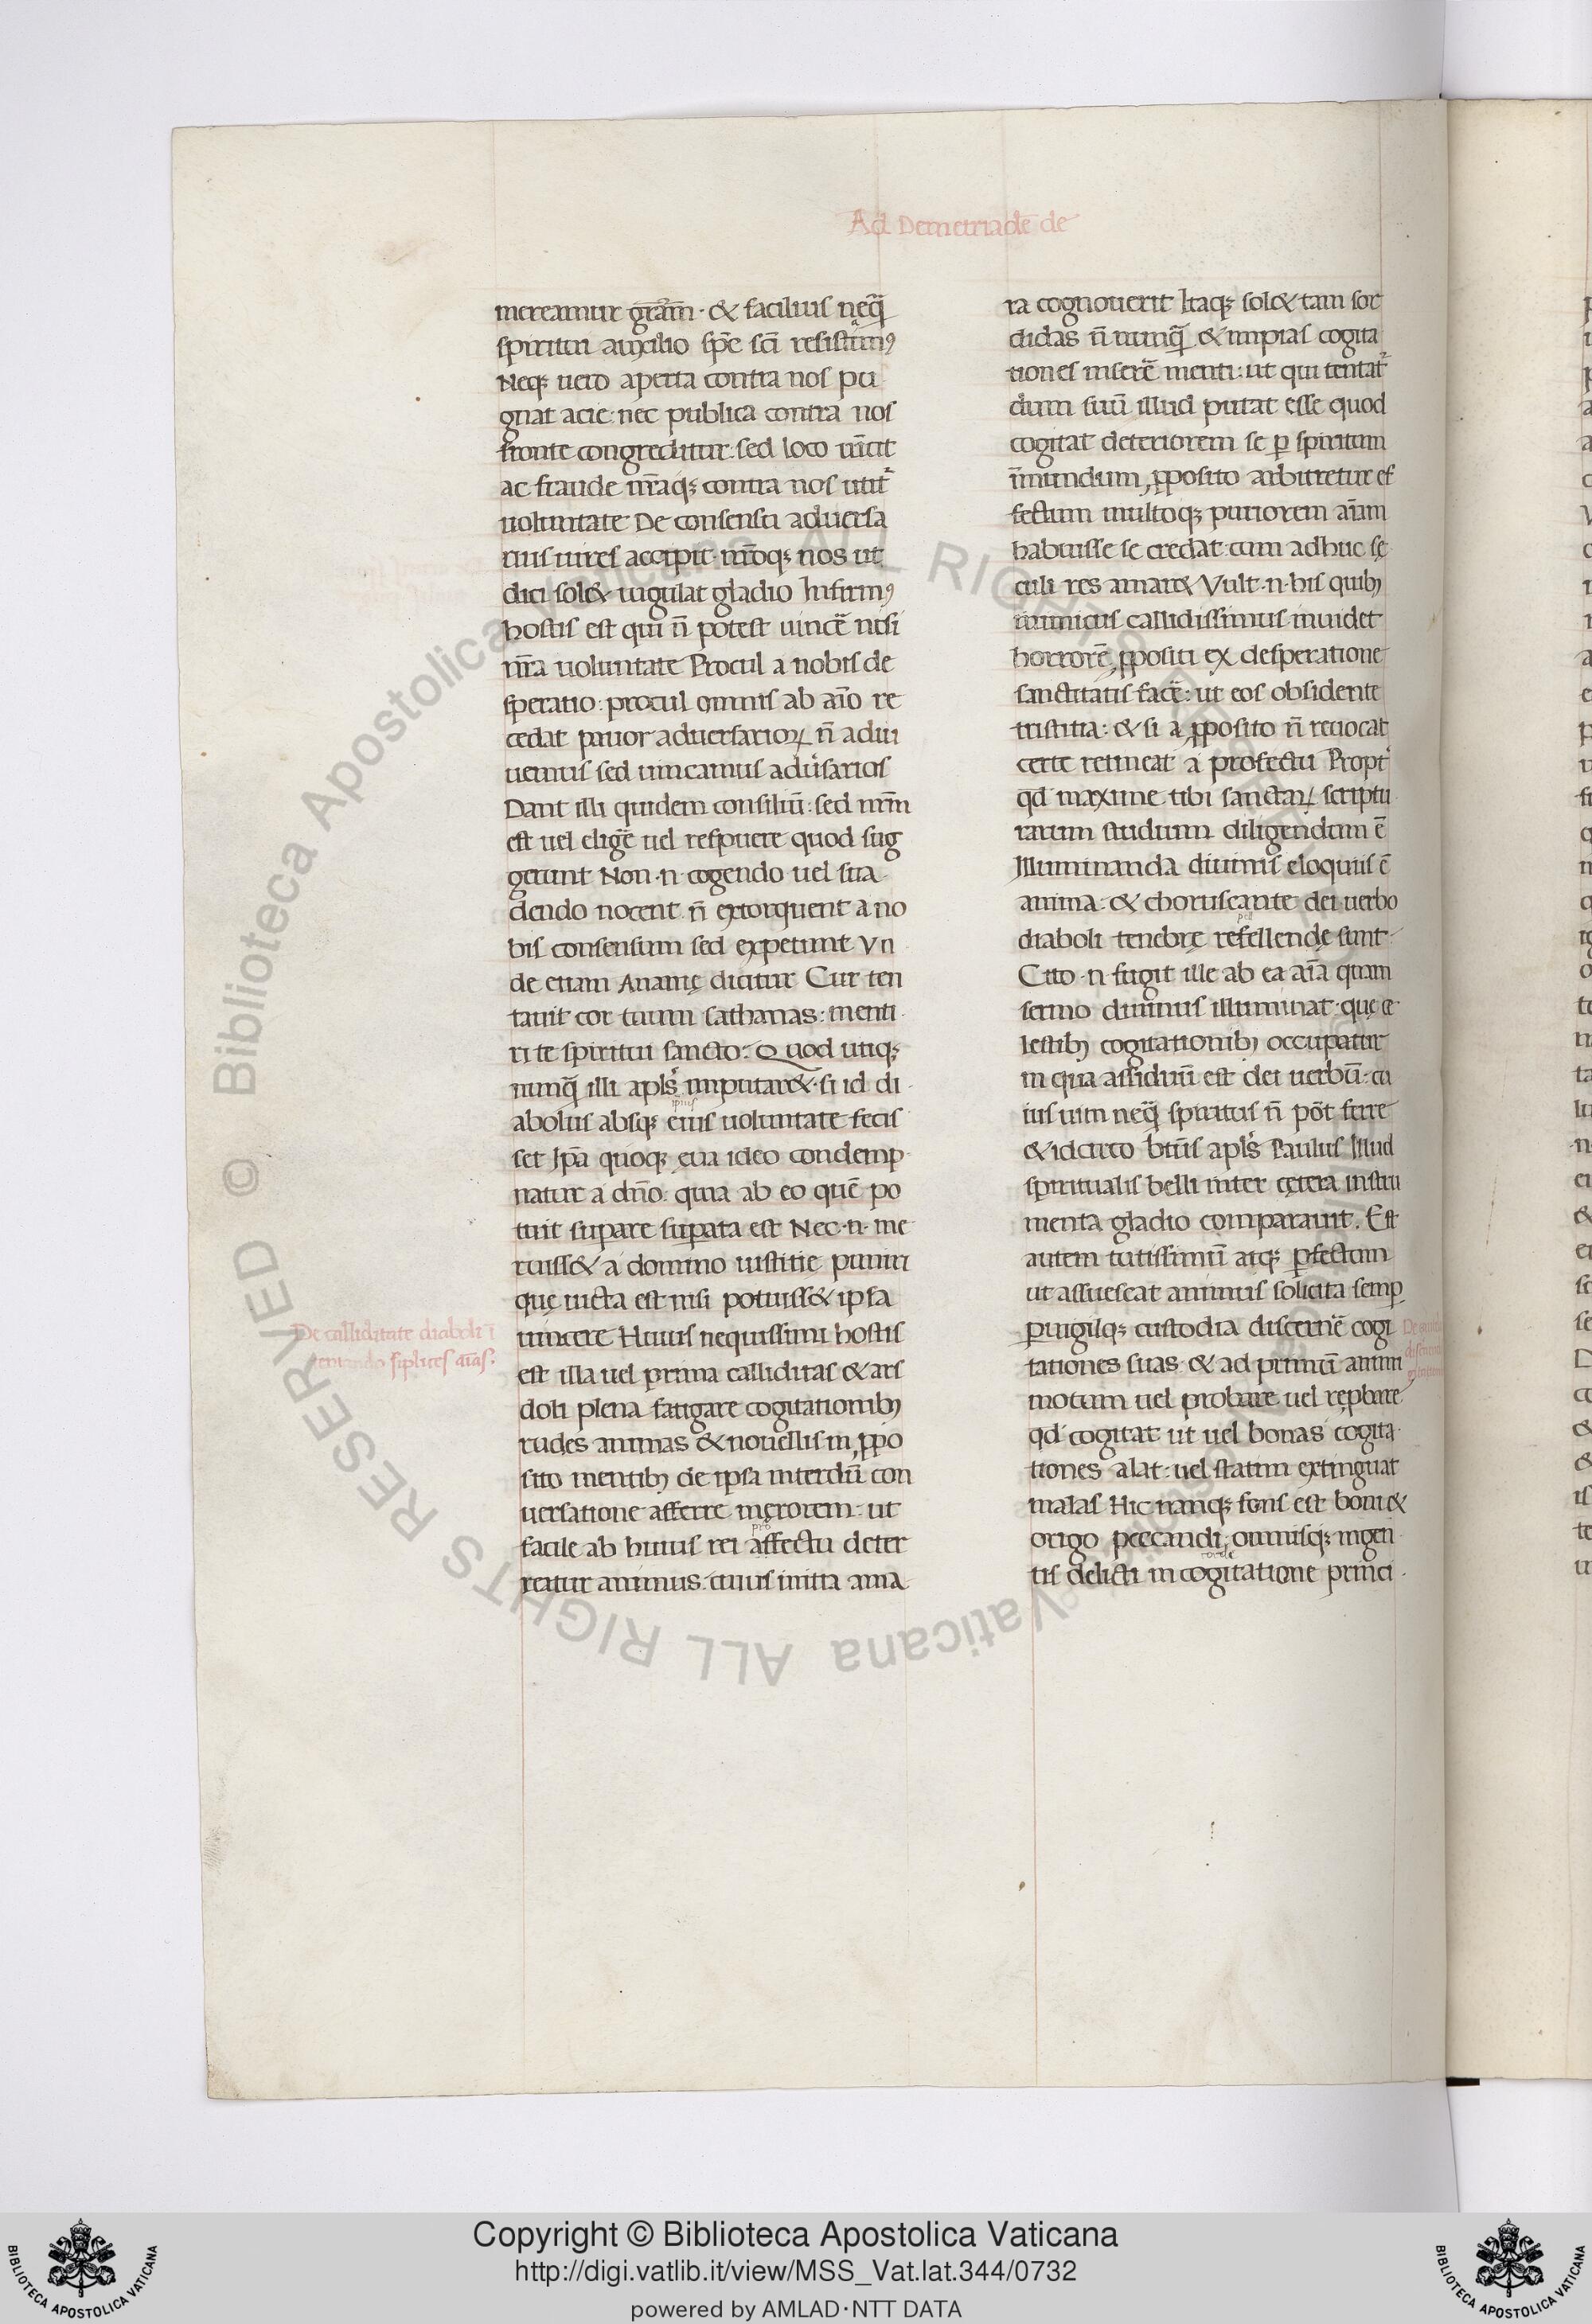 Ad Demetriadē de
mereamur gr̄am · & facilius neq̄
spiritui auxilio sp̄s sc̄i resistam9
Neq; uero aperta contra nos pu
gnat acie: nec publica contra nos
fronte congreditur: sed loco uīcit
ac fraude nr̄aq; contra nos utit̄
uoluntate De consensu aduersa
rius uires accipit · nr̄oq; nos ut
dici sol& iugulat gladio Infirm9
hostis est qui n̄ potest uincē nisi
nr̄a uoluntate Procul a nobis de
speratio: procul omnis ab aīo re
cedat pauor aduersarioꝝ n̄ adiu
uemus sed uincamus adūsarios
Dant illi quidem consiliū: sed nr̄m
est uel eligē uel respuere quod sug
gerunt Non ·n· cogendo uel sua
dendo nocent n̄ extorquent a no
bis consensum sed expetunt Vn
de etiam Ananię dicitur Cur ten
tauit cor tuum sathanas: menti
ri te spiritui sancto: Quod utiq;
nunq̄ illi apl̄s imputar& · si id di
abolus absq; eius uoluntate fecis
ipsius
set Ip̄a quoq; eua ideo condemp
natur a dn̄o: quia ab eo quē po
tuit suꝑare suꝑata est Nec ·n· me
ruiss& a domino iustitię puniri
quę uicta est nisi potuiss& ipsa
uincere Huius nequissimi hostis
est illa uel prima calliditas & ars
doli plena fatigare cogitationib;
rudes animas & nouellis in ꝓpo
sito mentib; de ipsa interdū con
uersatione afferre męrorem: ut
facile ab huius rei affectu deter
reatur animus: cuius initia ama
De calliditate diaboli ī
tentando sīplices aīas:
ra cognouerit Itaq; sol& tam sor
didas n̄ nunq̄ & impias cogita
tiones inserē menti: ut qui tentat̄
dum suū illud putat esse quod
cogitat deteriorem se ꝑ spiritum
īmundum ꝓposito arbitretur ef
fectum multoq; puriorem aīam
habuisse se credat: cum adhuc sę
culi res amar& Vult ·n· his quib;
inimicus callidissimus inuidet
horrorē ꝓpositi ex desperatione
sanctitatis facē: ut eos obsidente
tristitia: & si a ꝓposito n̄ reuocat
certe retineat a profectu Propt̄
qd̄ maxime tibi sanctaꝝ scriptu
rarum studium diligendum ē
Illuminanda diuinis eloquiis ē
anima: & choruscante dei uerbo
diaboli tenebrę refellendę sunt
Cito ·n· fugit ille ab ea aīa quam
sermo diuinus illuminat · quę cę
lestib; cogitationib; occupatur
in qua assiduū est dei uerbū: cu
ius uim neq̄ spiritus n̄ pōt ferre
& idcirco bt̄us apl̄s Paulus Illud
spiritualis belli inter cętera instru
menta gladio comparauit. Est
autem tutissimū atq; ꝑfectum
ut assuescat animus solicita semꝑ
ꝑuigilq; custodia discernē cogi
tationes suas · & ad primū animi
motum uel probare uel reꝓbare
qd̄ cogitat ut uel bonas cogita
tiones alat: uel statim extinguat
malas Hic nanq; fons est boni &
origo peccandi: omnisq; ingen
tis delicti in cogitatione princi